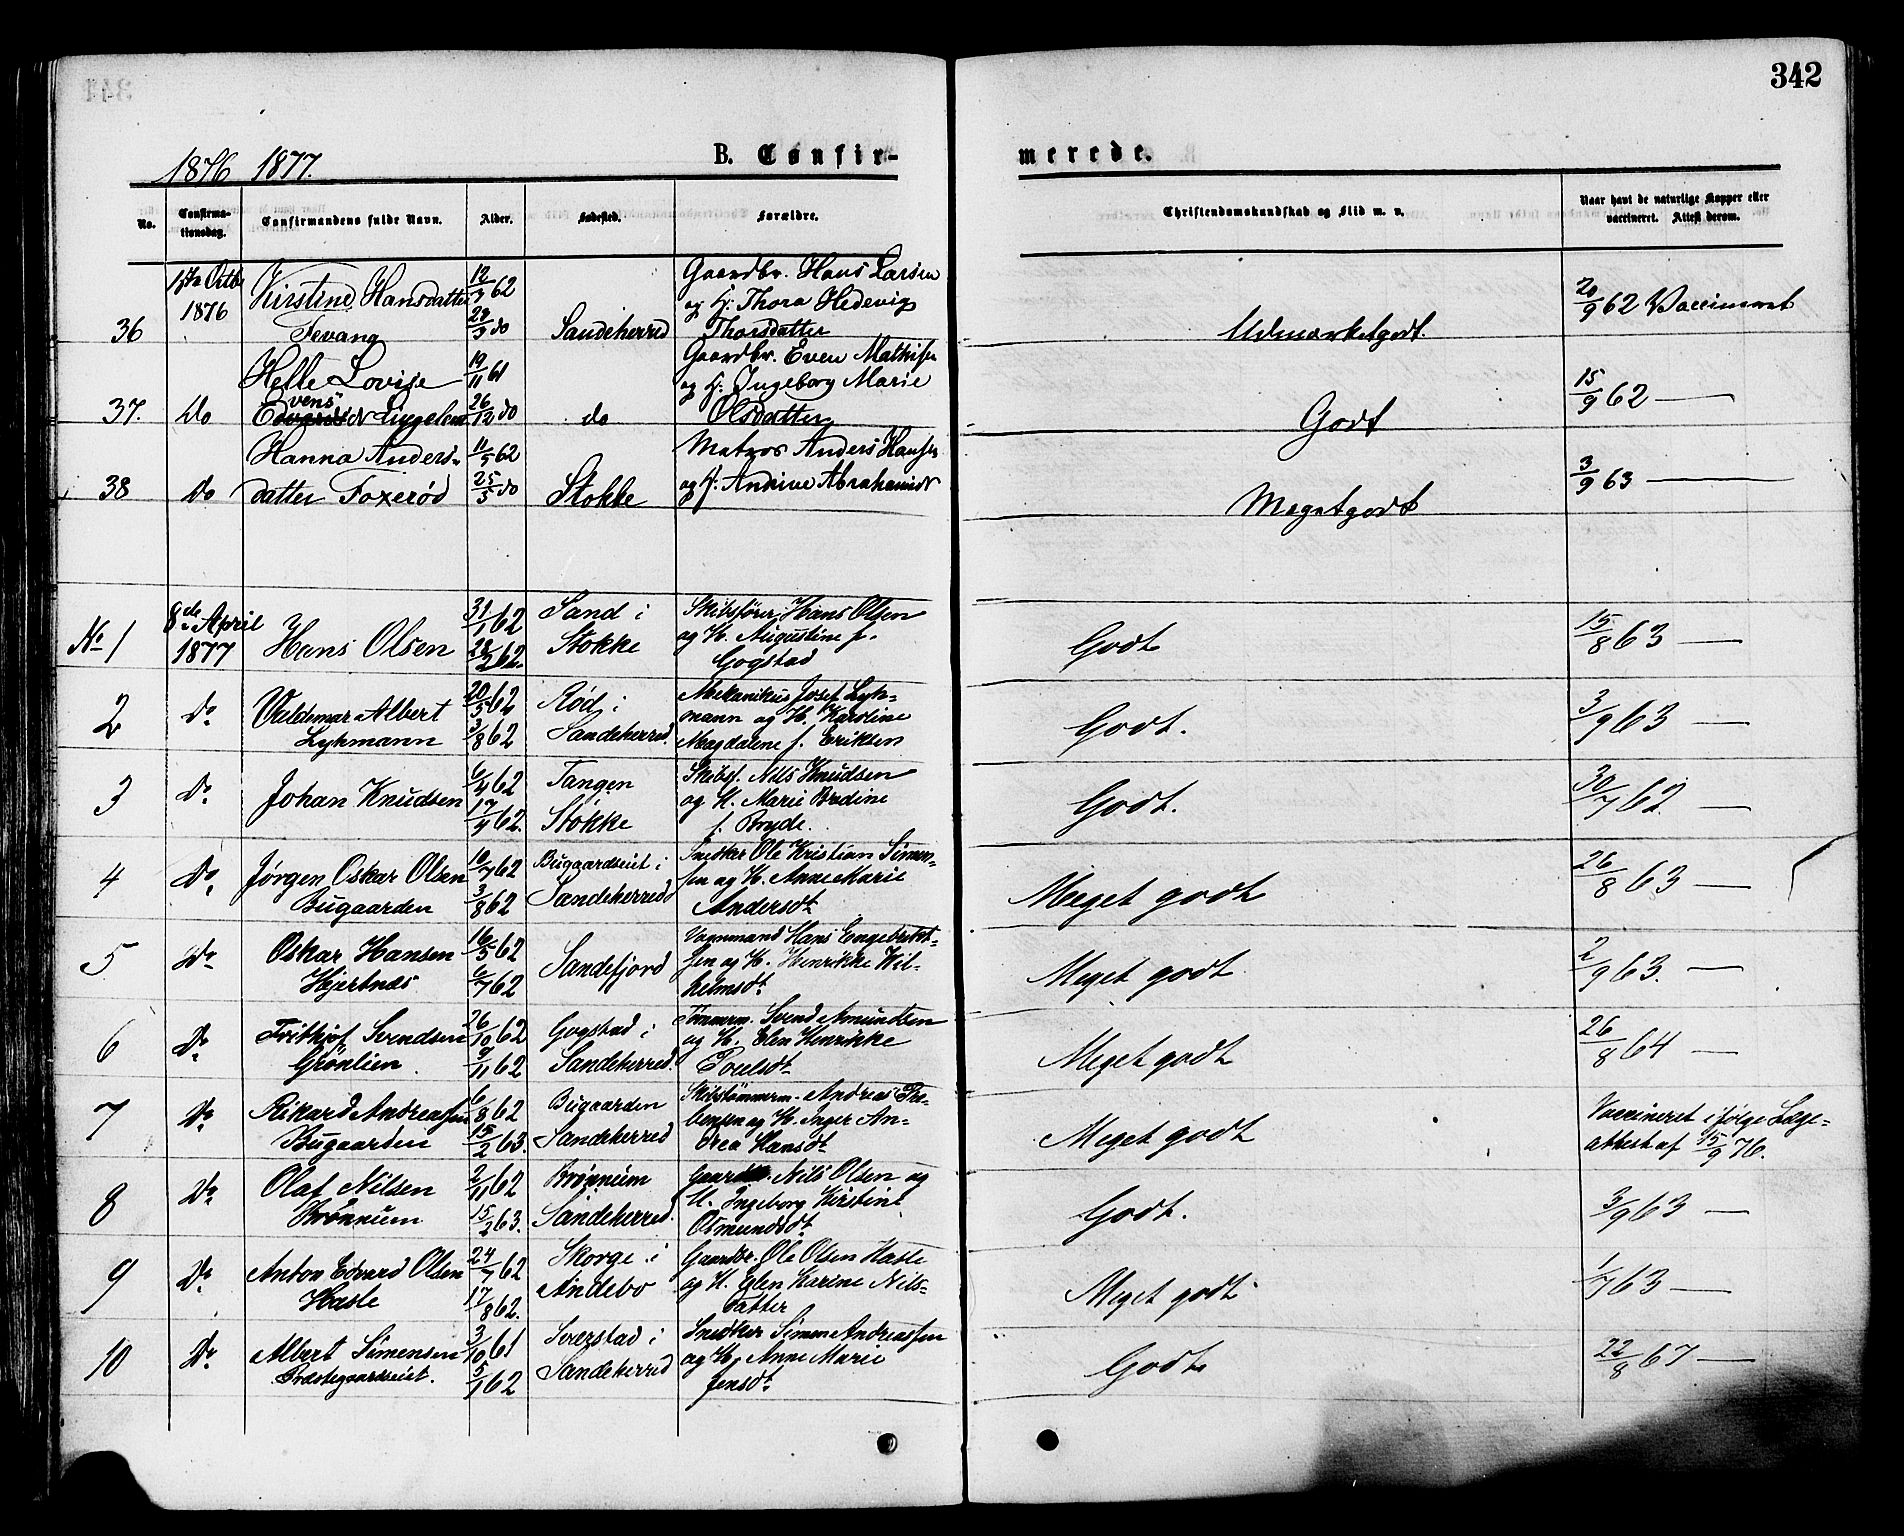 342
1876 1877.
B. Confir-
merede.
No.
Confirma-
tionsdag.
Confirmandens fulde Navn.
Alder.
Fødested.
Forældre.
Christendomskundskab og Flid m. v.
Naar havt de naturlige Kopper eller
vaccineret. Attest derom.
36
1876
Kirstine Hansdatter
Fevang
12/3 62
28/3 do
Sandeherred
Gaardbr. Hans Larsen
og H. Thora Hedevig
Thorsdatter
Udmærketgodt.
20/9 62 Vaccineret
37.
do
Helle Lovise
Evens
Lingelem
19/11 61
26/12 do
do
Gaardbr. Even Mathisen
og H. Ingeborg Marie
Olsdatter
Godt
15/9 62 —
38
do
Hanna Anders-
datter Foxerød
11/5 62
25/5 do
Stokke
Matros Anders Hansen
og H. Andrine Abrahamsdt
Megetgodt
3/9 63 —
No 1
8de April
1877
Hans Olsen
31/1 62
28/2 62.
Sand i
Stokke
Skibsfører Hans Olsen
og H. Augustine f.
Gogstad
Godt
15/8 63 —
2
do
Valdemar Albert
Lykmann
20/5 62
3/8 62
Rød i
Sandeherred.
Mekanikus Josef Lyk-
mann og H. Karoline
Magdalene f. Eriksen
Godt.
3/9 63 —
3
do
Johan Knudsen
6/4 62
17/4 62.
Tangen
Stokke
Skibsf. Nils Knudsen
og H. Marie Bredine
f. Bryde.
Godt.
30/7 62. —
4
Do.
Jørgen Oskar Olsen
Bugaarden
10/7 62
3/8 62
Bugaardseiet i
Sandeherred
Snedker Ole Kristian Simen-
sen og H. Anne Marie
Andersdt
Meget godt
26/8 63 —
5
Do
Oskar Hansen
Hjertnæs
16/5 62
6/7 62
Sandefjord
Vognmand Hans Engebrett-
sen og H. Henrikke Wil-
helmsdt
Meget godt
2/9 63. —
6
Do
Frithjof Svendsen
Grønlien.
26/10 62
9/11 62
Gogstad i
Sandeherred.
Tømmerm. Svend Amundsen
og H. Elen Henrikke
Poulsdt
Meget godt
26/8 64 —
7
Do
Rikard Andreassen
Bugaarden
6/8 62
15/2 63.
Bugaarden
Sandeherred
Skibstømmerm. Andreas Tre-
bensen og H. Inger An-
drea Hansdt
Meget godt
Vaccineret ifølge Læge-
attest af 15/9 76.
8
Do
Olaf Nilsen
Brønnum
2/11 62
15/2 63.
Brønnum
Sandeherred.
Nils Olsen og
H. Ingeborg Kirstine
Osmundsdt
Godt.
3/9 63 —
9
Do
Anton Edvard Olsen
Hasle
24/7 62
17/8 62.
Skorge i
Andebo
Gaardbr. Ole Olsen Hasle
og H. Elen Karine Nils-
datter
Meget godt
1/7 63 —
10
Do
Albert Simensen
Præstegaardseiet.
3/10 61
5/1 62
Sverstad i
Sandeherred
Snedker Simen Andreassen
og H. Anne Marie
Jensdt
Godt
22/8 67 —